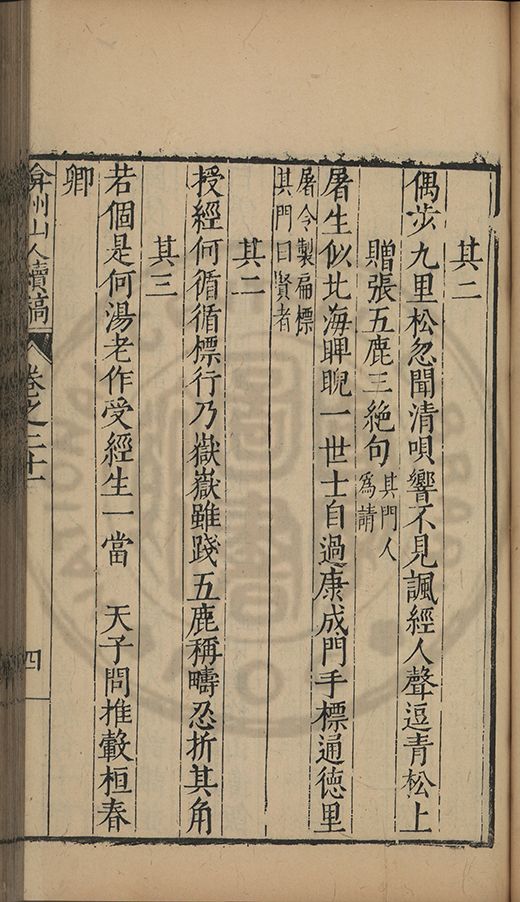 其二
偶步九里松忽聞清唄響不見諷經人聲逗青松上
贈張五鹿三絶句其門人
為請
屠生似北海睥睨一世士自過康成門手標通德里
屠令製扁標
其門曰賢者
其二
授經何循循標行乃嶽嶽雖踐五鹿稱疇忍折其角
其三
若個是何湯老作受經生一當　天子問推轂桓春
卿
弇州山人續稿　卷之二十一　四